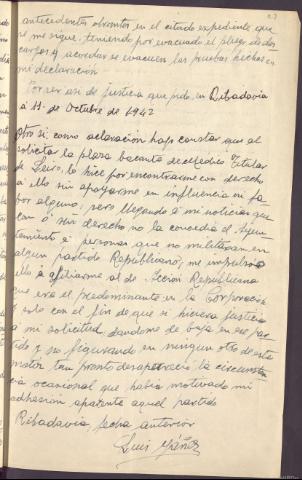 antecedentes obrantes en el citado expediente que
se me sigue, teniendo por evacuado el pliego de des-
cargos y acordar se evacuen las pruebas hechas en
mi declaración
Por ser así de justicia que pido en Ribadavia
a 11 de Octubre de 1942
Otro sí: como aclaración hago constar que al
solicitar la plaza bacante de Médico Titular
de Leiro, lo hice por encontrarme con derecho
a ello sin apoyarme en influencia ni fa-
bor alguno, pero llegando a mi noticias que
con ó sin derecho no la concedía el Ayun-
tamiento á personas que no militasen en
algun partido Republicano, me impulsó
ello a afiliarme al de Acción Republicana
que era el predominante en la Corporación
y esto con el fin de que se hiciera justicia
a mi solicitud dandome de baja en ese par-
tido y no figurando en ningun otro de este
matiz tan pronto desapareció la circunstan-
cia ocasional que había motivado mi
adhesión aparente aquel partido
Ribadavia, fecha anterior
Luis Yáñez